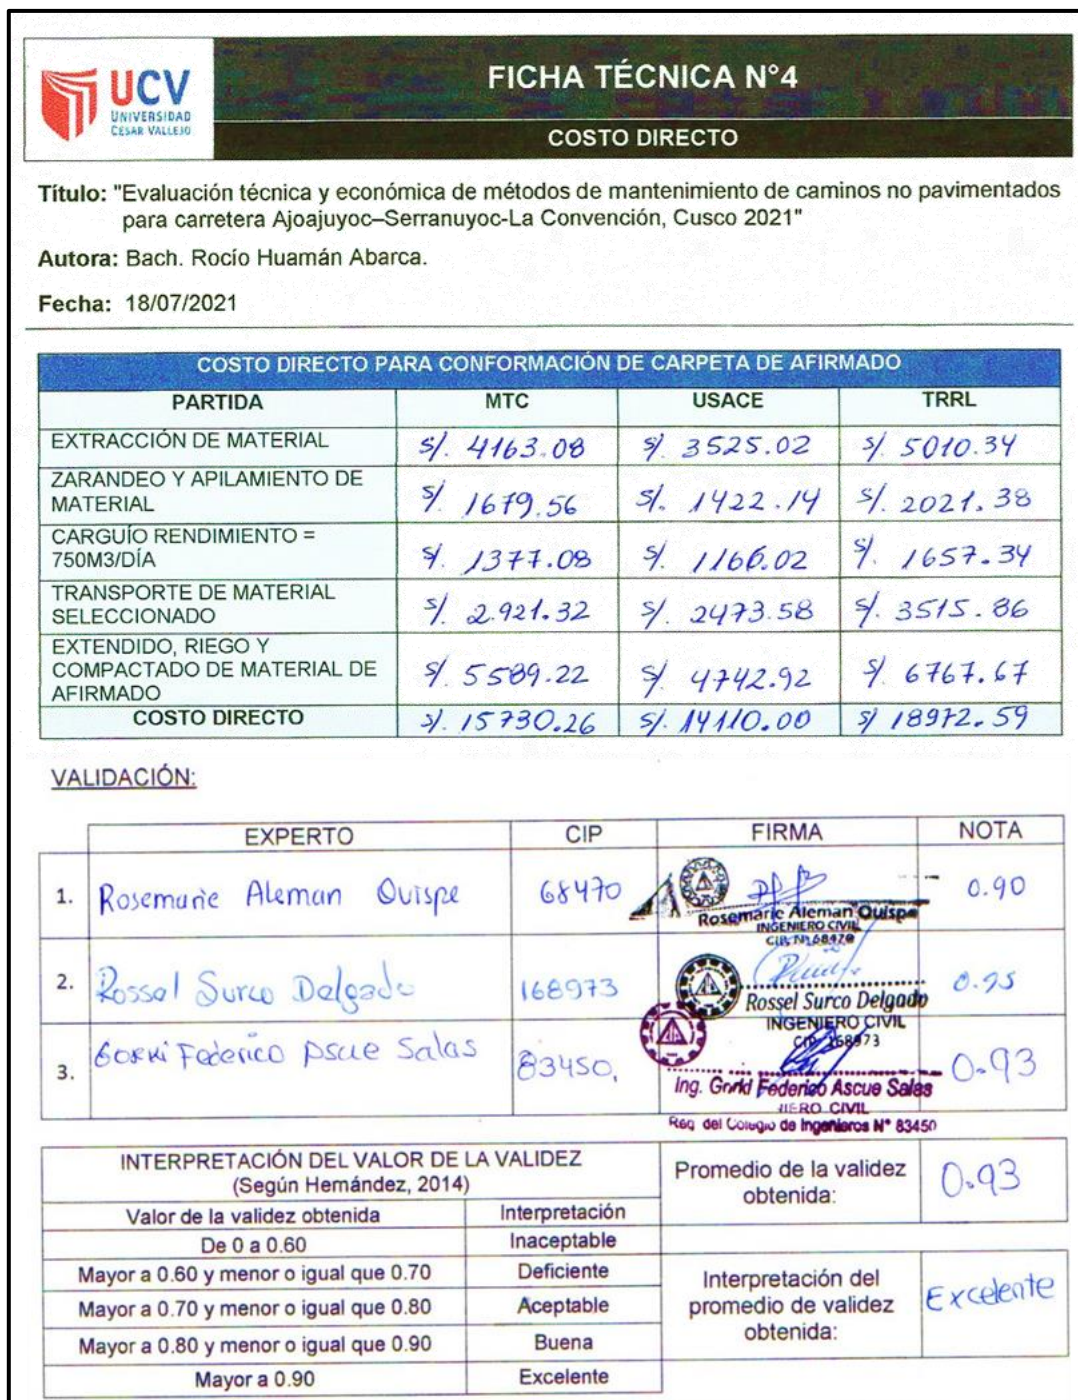 UCV
UNIVERSIDAD
CÉSAR VALLEJO
FICHA TÉCNICA N°4
COSTO DIRECTO
Título: "Evaluación técnica y económica de métodos de mantenimiento de caminos no pavimentados
para carretera Ajoajuyoc–Serranuyoc-La Convención, Cusco 2021"
Autora: Bach. Rocío Huamán Abarca.
Fecha: 18/07/2021
COSTO DIRECTO PARA CONFORMACIÓN DE CARPETA DE AFIRMADO
PARTIDA MTC USACE TRRL
EXTRACCIÓN DE MATERIAL S/. 4163.08 S/. 3525.02 S/. 5010.34
ZARANDEO Y APILAMIENTO DE
MATERIAL S/. 1679.56 S/. 1422.14 S/. 2021.38
CARGUÍO RENDIMIENTO =
750M3/DÍA S/. 1377.08 S/. 1166.02 S/. 1657.34
TRANSPORTE DE MATERIAL
SELECCIONADO S/. 2.921.32 S/. 2473.58 S/. 3515.86
EXTENDIDO, RIEGO Y
COMPACTADO DE MATERIAL DE
AFIRMADO S/. 5589.22 S/. 4742.92 S/. 6767.67
COSTO DIRECTO S/. 15730.26 S/. 14110.00 S/ 18972.59
VALIDACIÓN:
EXPERTO CIP FIRMA NOTA
1. Rosemarie Aleman Quispe 68470 0.90
Rosemarie Aleman Quispe
INGENIERO CIVIL
CIP. N° 68470
2. Rossel Surco Delgado 168973 0.95
Rossel Surco Delgado
INGENIERO CIVIL
CIP. 168973
3. Gorki Federico Ascue Salas 83450, 0.93
Ing. Gorki Federico Ascue Salas
Reg. del Colegio de Ingenieros N° 83450
INTERPRETACIÓN DEL VALOR DE LA VALIDEZ
(Según Hernández, 2014)
Valor de la validez obtenida Interpretación
De 0 a 0.60 Inaceptable
Mayor a 0.60 y menor o igual que 0.70 Deficiente
Mayor a 0.70 y menor o igual que 0.80 Aceptable
Mayor a 0.80 y menor o igual que 0.90 Buena
Mayor a 0.90 Excelente
Promedio de la validez
obtenida: 0.93
Interpretación del
promedio de validez
obtenida: Excelente